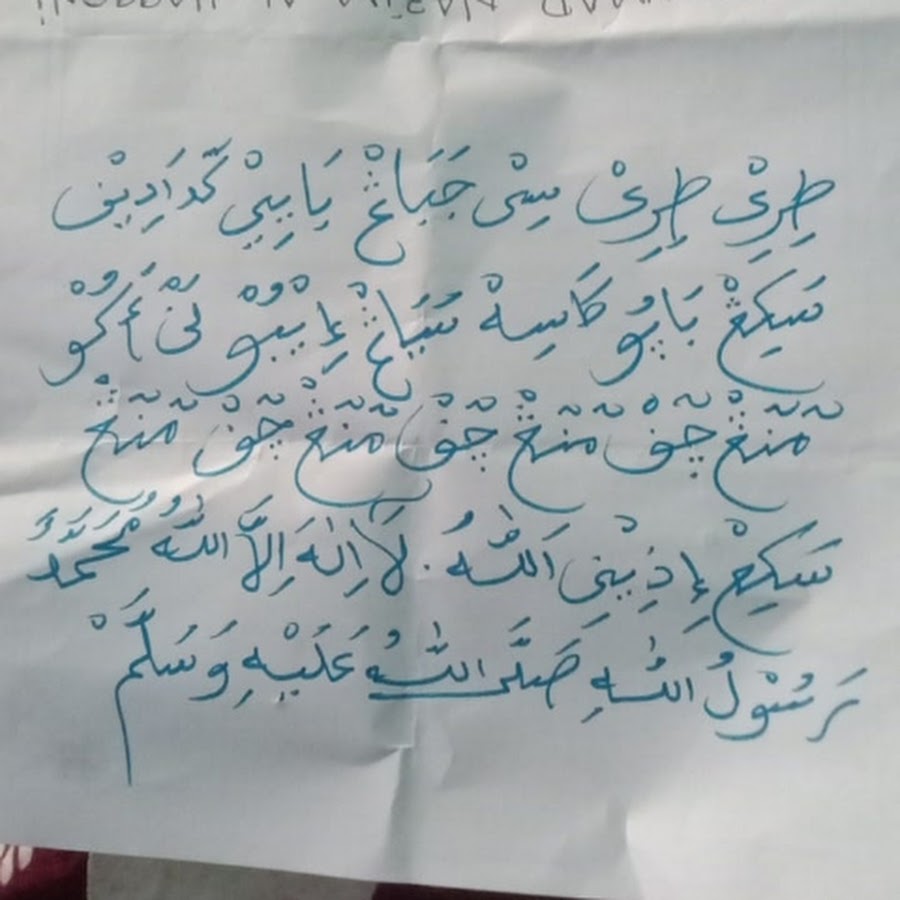 طِرِىْ طِرِىْ سِىْ جَبَاڠْ بَايِيْ كَّدَادِيْنْ
سَكِڠْ بَاڤُو كَاسِهْ سَيَاڠْ إِيْبُوْ لَنْ أَكُوْ
مّنّڠْ چّقْ مّنّڠْ چّقْ مّنّڠْ چّقْ مّنّڠْ
سَكِڠْ إِذِيْنَى اَللّٰهُ. لَا اِلٰهَ اِلَّا اللّٰهُ مُحَمَّدٌ
رَسُوْلُ اللّٰهِ صَلَّى اللّٰهُ عَلَيْهِ وَسَلَّمْ